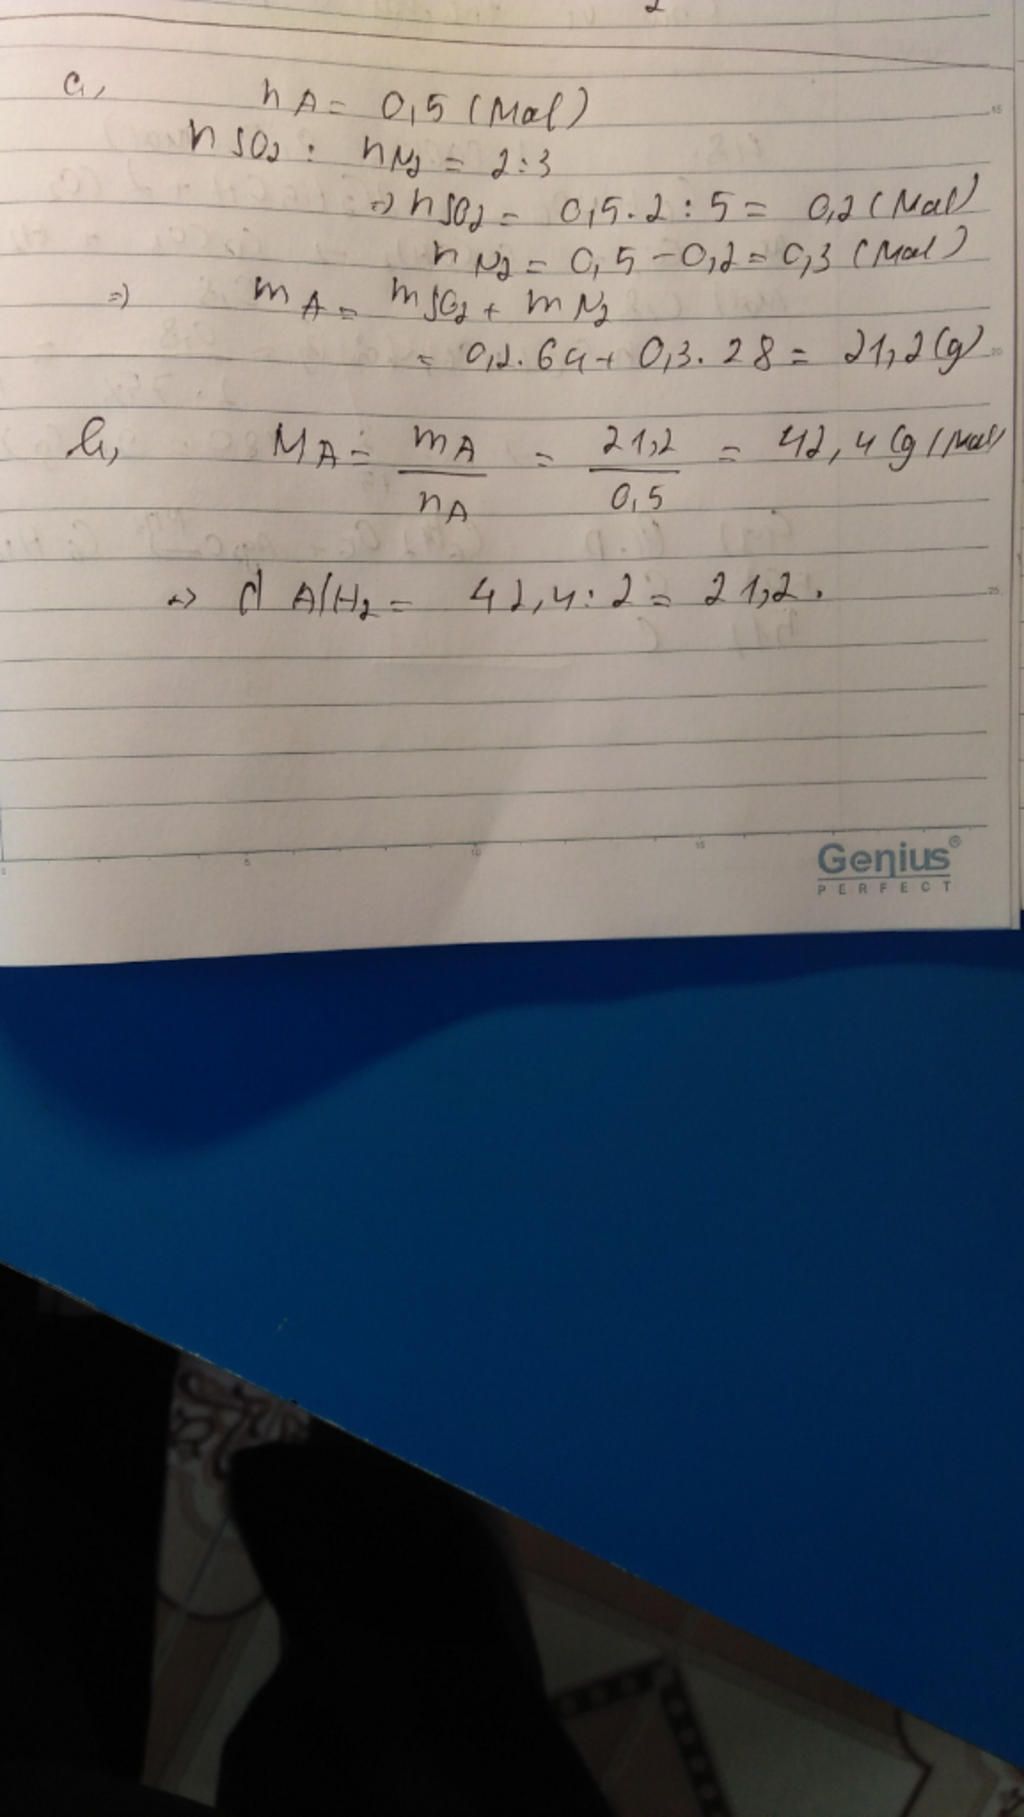 a, nA = 0,5 (Mol)
nSO2 : nN2 = 2:3
=> nSO2 = 0,5.2:5 = 0,2 (Mol)
nN2 = 0,5 - 0,2 = 0,3 (Mol)
=> mA = mSO2 + mN2
= 0,2.64 + 0,3.28 = 21,2 (g)
b, MA = mA/nA = 21,2/0,5 = 42,4 (g/Mol)
=> d A/H2 = 42,4:2 = 21,2.
Genius®
PERFECT